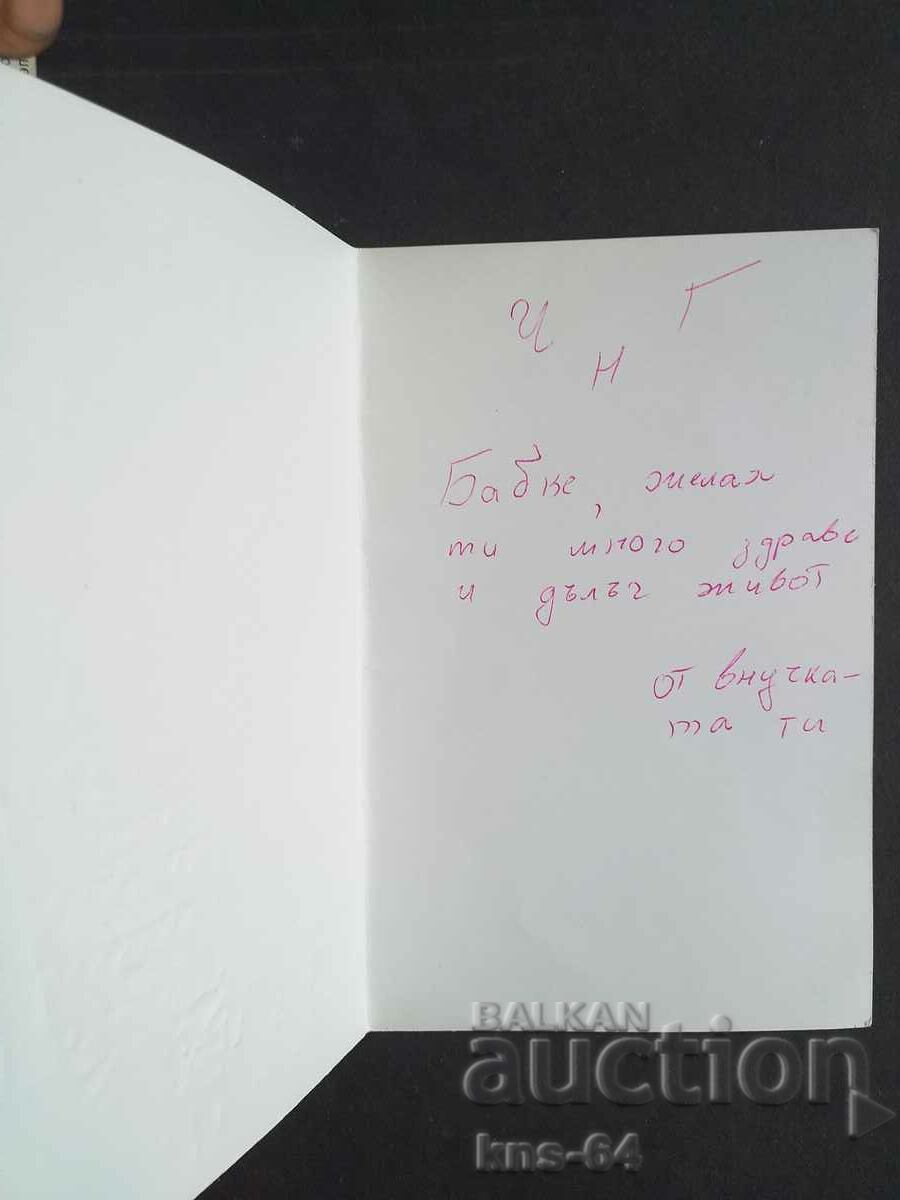 Ч Н Г
Бабке, желая
ти много здраве
и дълъг живот
от внучка-
та ти
BALKAN
auction
kns-64